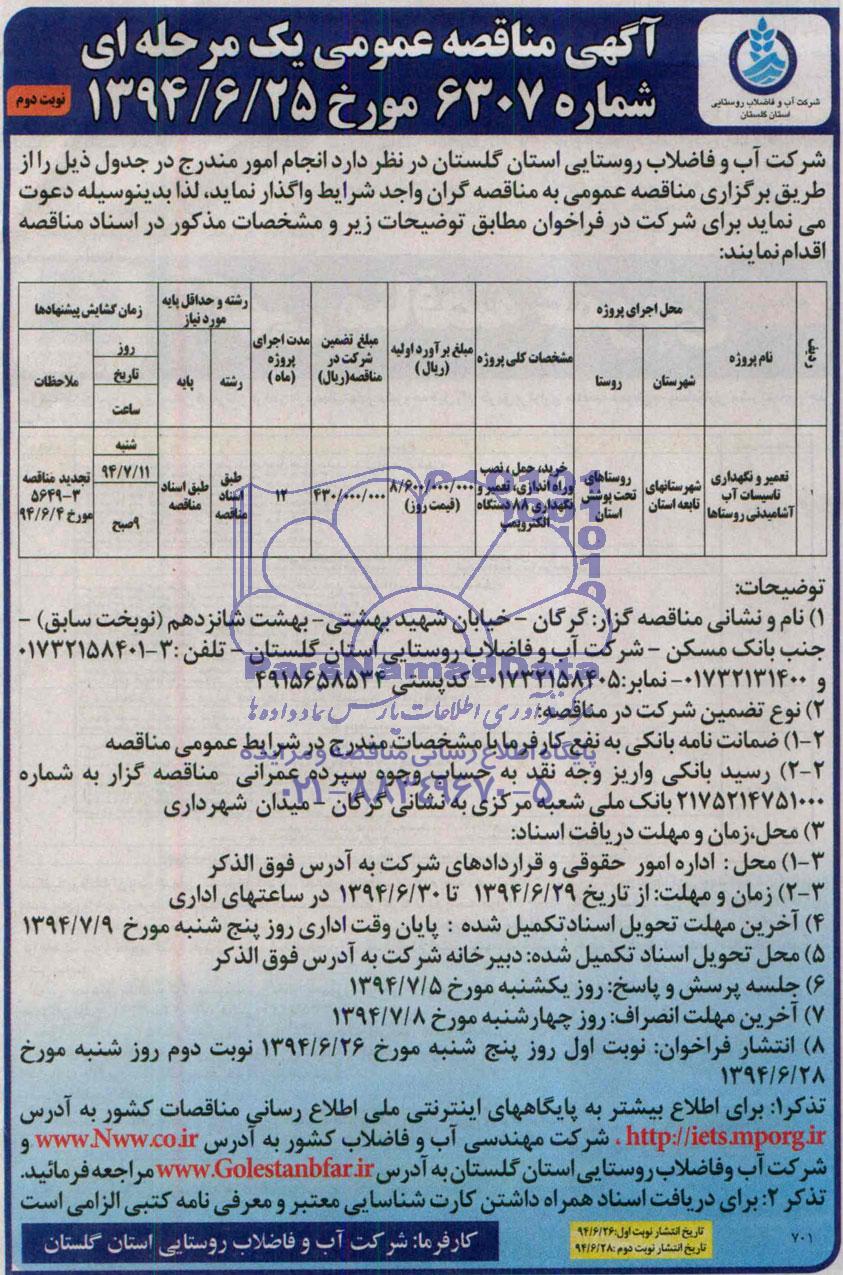 شرکت آب و فاضلاب روستایی
استان گلستان
آگهی مناقصه عمومی یک مرحله ای
شماره ۶۳۰۷ مورخ ۱۳۹۴/۶/۲۵
نوبت دوم
شرکت آب و فاضلاب روستایی استان گلستان در نظر دارد انجام امور مندرج در جدول ذیل را از
طریق برگزاری مناقصه عمومی به مناقصه گران واجد شرایط واگذار نماید، لذا بدینوسیله دعوت
می نماید برای شرکت در فراخوان مطابق توضیحات زیر و مشخصات مذکور در اسناد مناقصه
اقدام نمایند:
ردیف
نام پروژه
محل اجرای پروژه
شهرستان
روستا
مشخصات کلی پروژه
مبلغ برآورد اولیه
(ریال)
مبلغ تضمین
شرکت در
مناقصه(ریال)
مدت اجرای
پروژه
(ماه)
رشته و حداقل پایه
مورد نیاز
رشته
پایه
زمان گشایش پیشنهادها
روز
تاریخ
ساعت
ملاحظات
۱
تعمیر و نگهداری
تاسیسات آب
آشامیدنی روستاها
شهرستانهای
تابعه استان
روستاهای
تحت پوشش
استان
خرید، حمل، نصب
وراه اندازی، تعمیر و
نگهداری ۸۸ دستگاه
الکتروپمپ
۸/۶۰۰/۰۰۰/۰۰۰
(قیمت روز)
۴۳۰/۰۰۰/۰۰۰
۱۲
طبق
اسناد
مناقصه
طبق اسناد
مناقصه
شنبه
۹۴/۷/۱۱
۹صبح
تجدید مناقصه
۵۶۴۹-۳
مورخ ۹۴/۶/۴
توضیحات:
۱) نام و نشانی مناقصه گزار: گرگان - خیابان شهید بهشتی- بهشت شانزدهم (نوبخت سابق) -
جنب بانک مسکن - شرکت آب و فاضلاب روستایی استان گلستان - تلفن :۳-۰۱۷۳۲۱۵۸۴۰۱
و ۰۱۷۳۲۱۳۱۴۰۰- نمابر:۰۱۷۳۲۱۵۸۴۰۵- کدپستی ۴۹۱۵۶۵۸۵۳۴
ParsNamadData
مرکز فرآوری اطلاعات پارس نماد داده ها
۲) نوع تضمین شرکت در مناقصه:
۲-۱) ضمانت نامه بانکی به نفع کارفرما با مشخصات مندرج در شرایط عمومی مناقصه
پایگاه اطلاع رسانی مناقصه و مزایده
۲-۲) رسید بانکی واریز وجه نقد به حساب وجوه سپرده عمرانی مناقصه گزار به شماره
۰۲۱-۸۸۳۴۹۶۷۰-۵
۲۱۷۵۲۱۴۷۵۱۰۰۰ بانک ملی شعبه مرکزی به نشانی گرگان - میدان شهرداری
۳) محل،زمان و مهلت دریافت اسناد:
۳-۱) محل : اداره امور حقوقی و قراردادهای شرکت به آدرس فوق الذکر
۳-۲) زمان و مهلت: از تاریخ ۱۳۹۴/۶/۲۹ تا ۱۳۹۴/۶/۳۰ در ساعتهای اداری
۴) آخرین مهلت تحویل اسنادتکمیل شده : پایان وقت اداری روز پنج شنبه مورخ ۱۳۹۴/۷/۹
۵) محل تحویل اسناد تکمیل شده: دبیرخانه شرکت به آدرس فوق الذکر
۶) جلسه پرسش و پاسخ: روز یکشنبه مورخ ۱۳۹۴/۷/۵
۷) آخرین مهلت انصراف: روز چهارشنبه مورخ ۱۳۹۴/۷/۸
۸) انتشار فراخوان: نوبت اول روز پنج شنبه مورخ ۱۳۹۴/۶/۲۶ نوبت دوم روز شنبه مورخ
۱۳۹۴/۶/۲۸
تذکر۱: برای اطلاع بیشتر به پایگاههای اینترنتی ملی اطلاع رسانی مناقصات کشور به آدرس
http://iets.mporg.ir ، شرکت مهندسی آب و فاضلاب کشور به آدرس www.Nww.co.ir و
شرکت آب وفاضلاب روستایی استان گلستان به آدرس www.Golestanbfar.ir مراجعه فرمائید.
تذکر ۲: برای دریافت اسناد همراه داشتن کارت شناسایی معتبر و معرفی نامه کتبی الزامی است
۷۰۱
تاریخ انتشار نوبت اول:۹۴/۶/۲۶
تاریخ انتشار نوبت دوم :۹۴/۶/۲۸
کارفرما: شرکت آب و فاضلاب روستایی استان گلستان